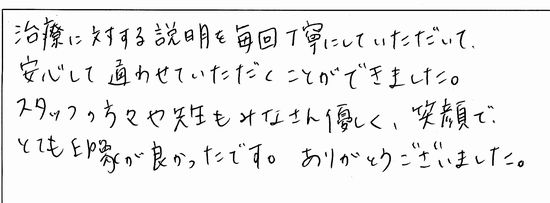 治療に対する説明を毎回丁寧にしていただいて、
安心して通わせていただくことができました。
スタッフの方々や先生もみなさん優しく、笑顔で、
とても印象が良かったです。ありがとうございました。